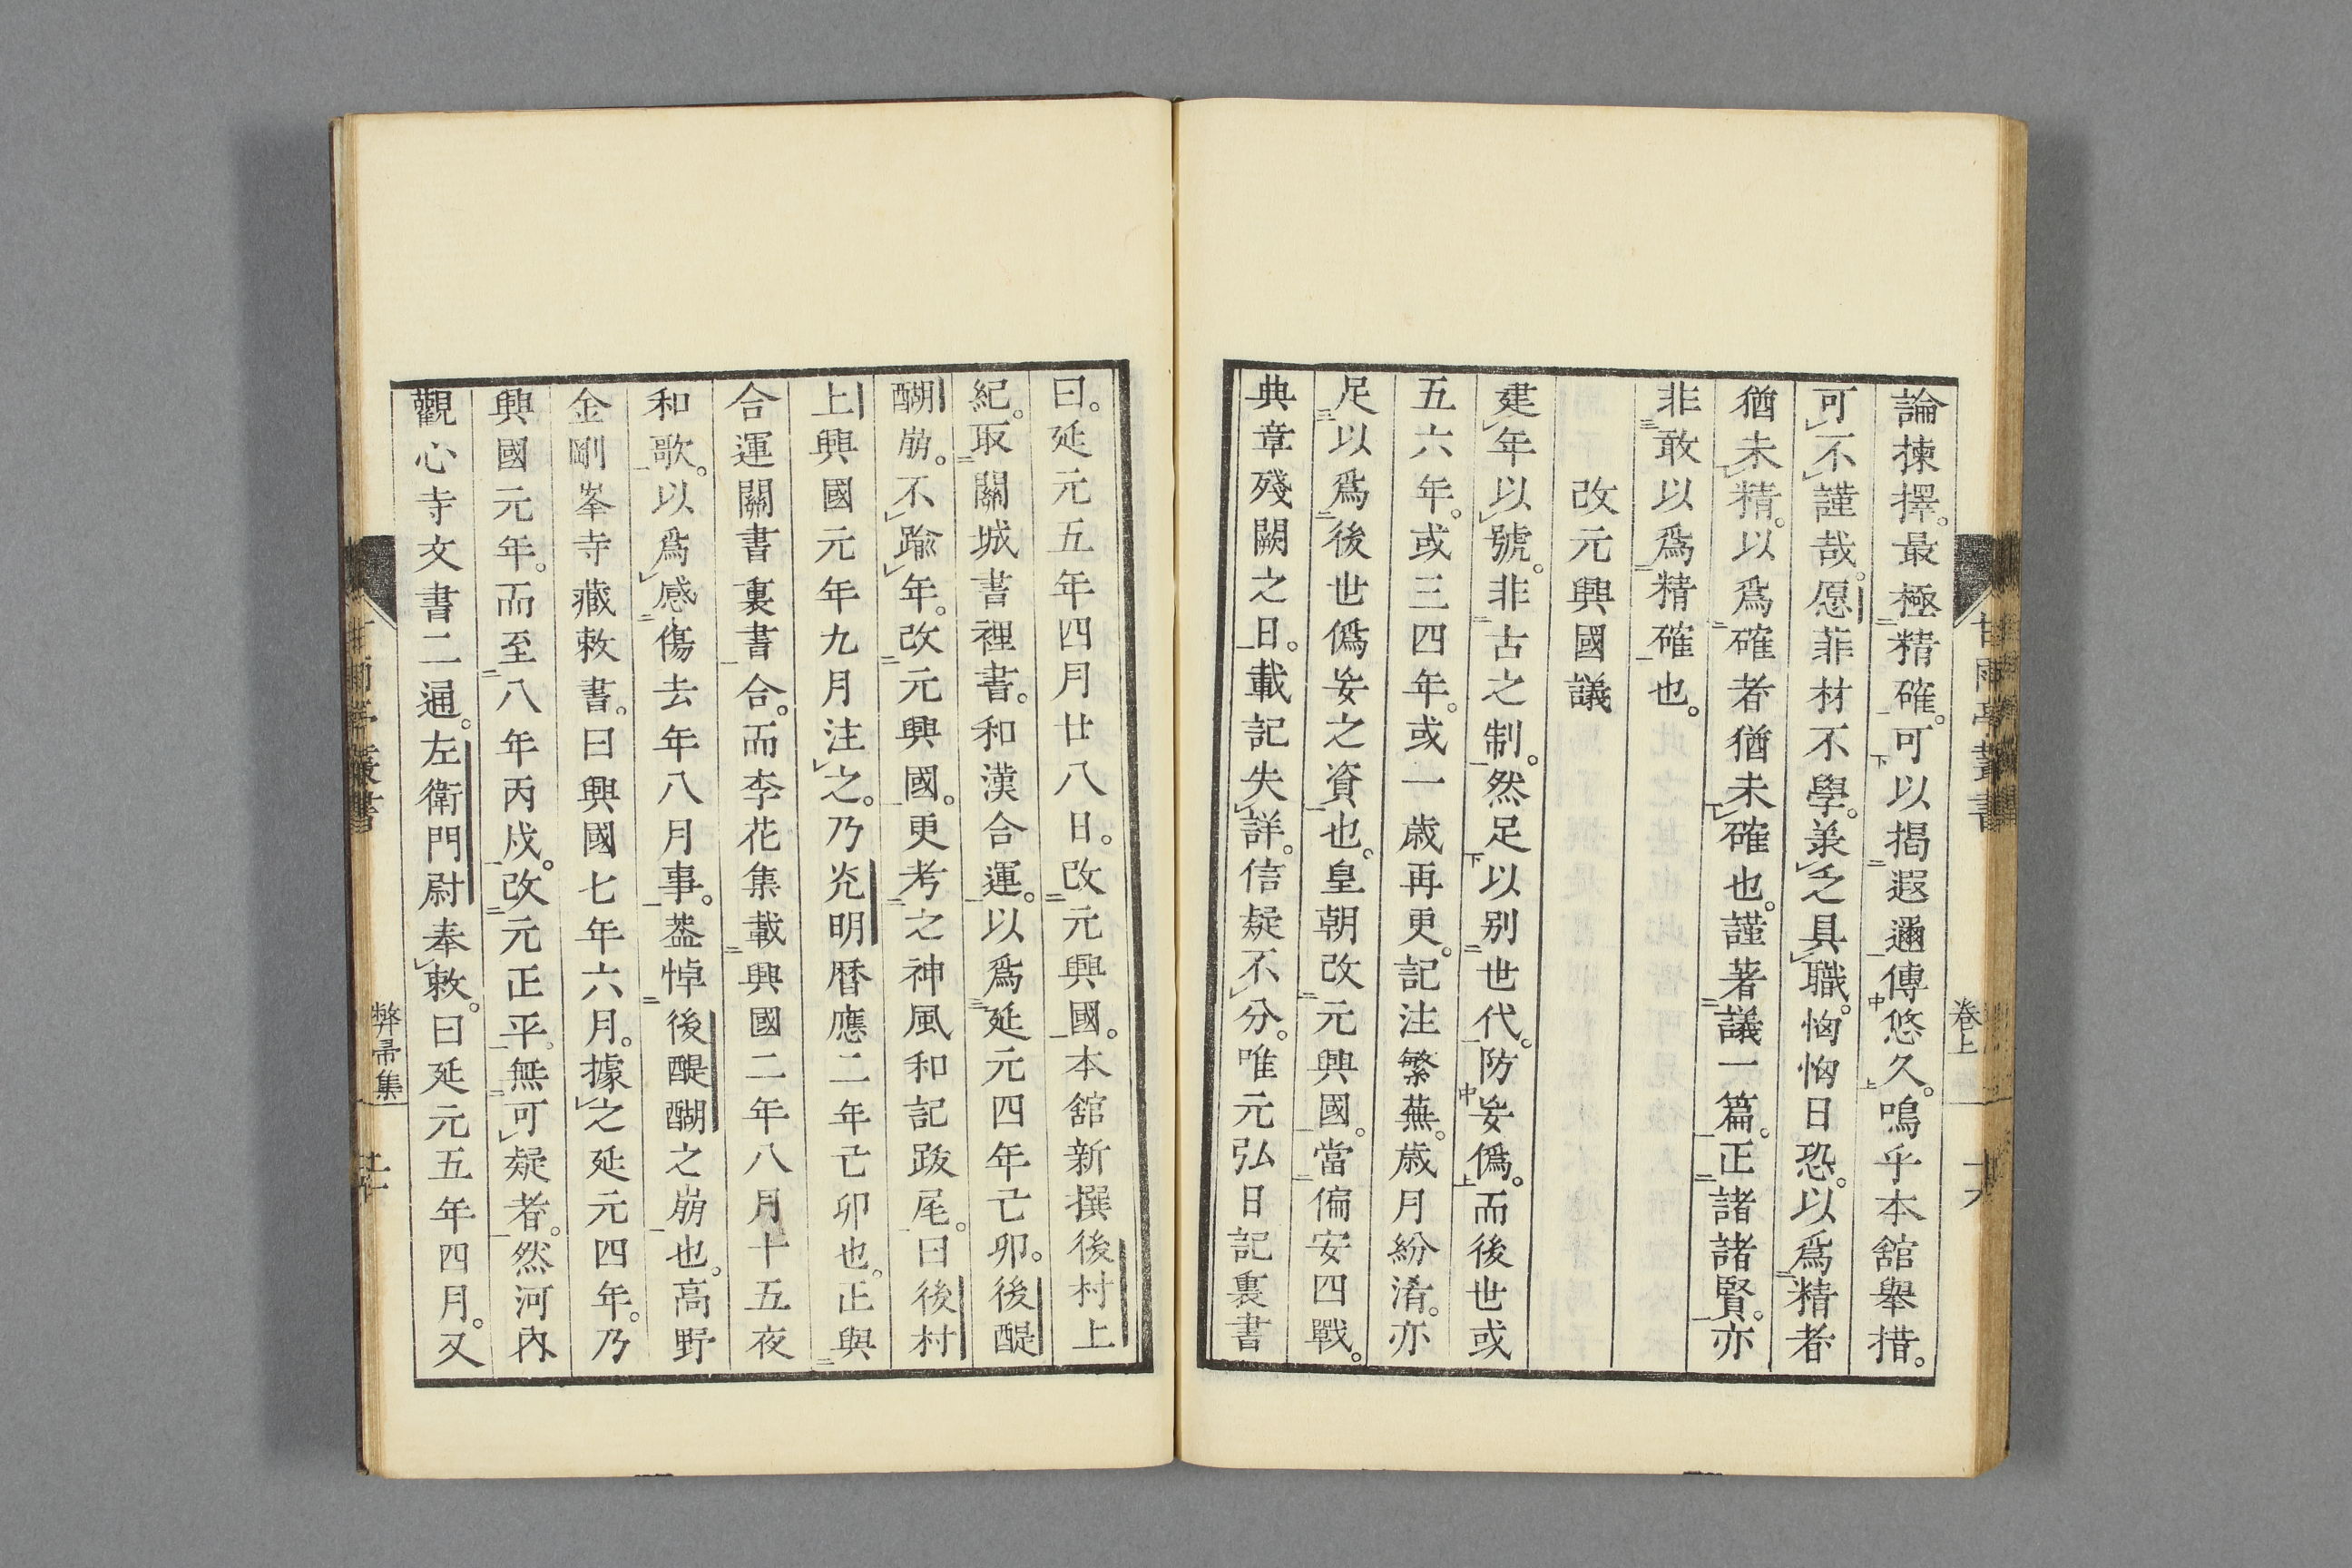 論揀擇。最極精確。可以揭遐邇傳悠久。嗚乎本舘舉措。
可不謹哉。愿菲材不學。羕乏具職。恟恟日恐。以爲精者
猶未精。以爲確者猶未確也。謹著議一篇。正諸諸賢。亦
非敢以爲精確也。
改元興國議
建年以號。非古之制。然足以别世代。防妄僞。而後世或
五六年。或三四年。或一歳再更。記注繁蕪。歳月紛淆。亦
足以爲後世僞妄之資也。皇朝改元興國。當偏安四戰。
典章殘闕之日。載記失詳。信疑不分。唯元弘日記裏書
曰。延元五年四月廿八日。改元興國。本舘新撰後村上
紀。取關城書裡書。和漢合運。以爲延元四年亡卯。後醍
醐崩。不踰年。改元興國。更考之神風和記跋尾。曰後村
上興國元年九月注之。乃光明曆應二年亡卯也。正與
合運關書裏書合。而李花集載興國二年八月十五夜
和歌。以爲感傷去年八月事。葢悼後醍醐之崩也。高野
金剛峯寺藏敕書。曰興國七年六月。據之延元四年。乃
興國元年。而至八年丙戍。改元正平。無可疑者。然河內
觀心寺文書二通。左衛門尉奉敕。曰延元五年四月。又
甘雨亭叢書
卷上
十六
弊帚集